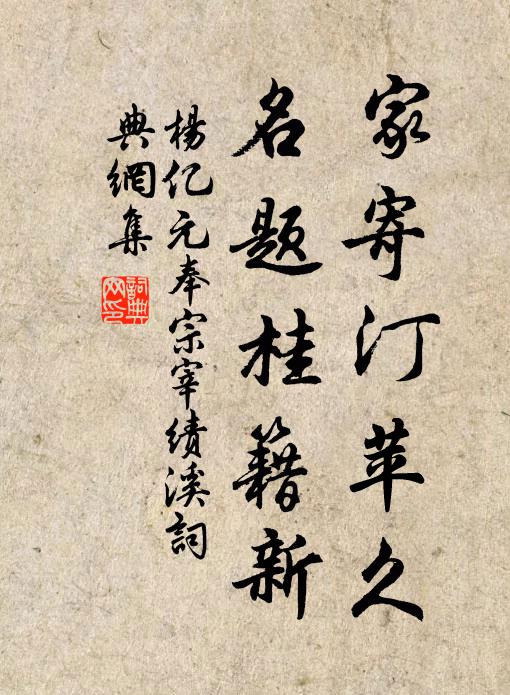 家寄汀苹久
名题桂籍新
楊亿元奉宗宰绩溪詞
典網集
詞典
网印